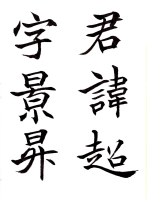 君諱超
字景昇